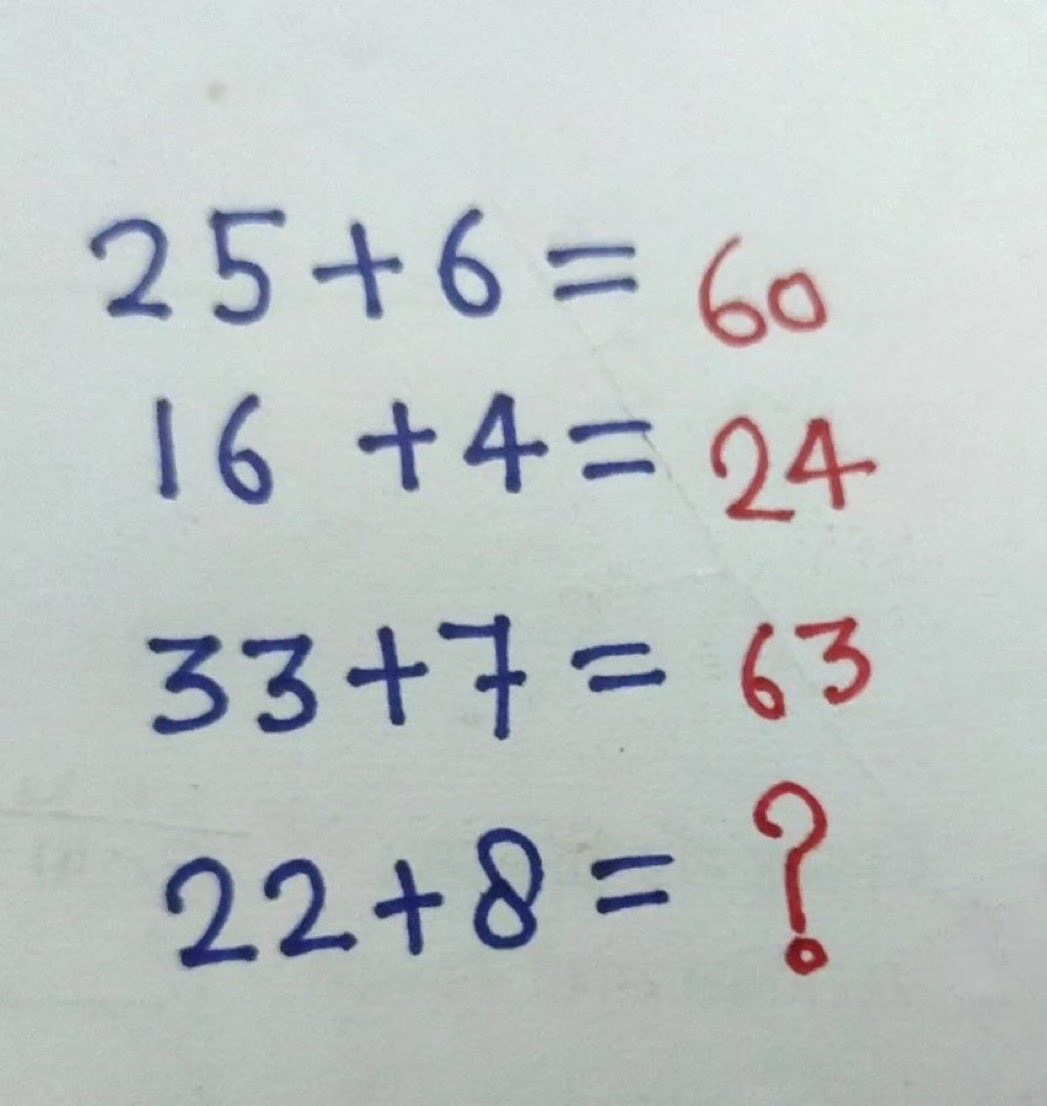 25+6=60
16+4=24
33+7=63
22+8=?